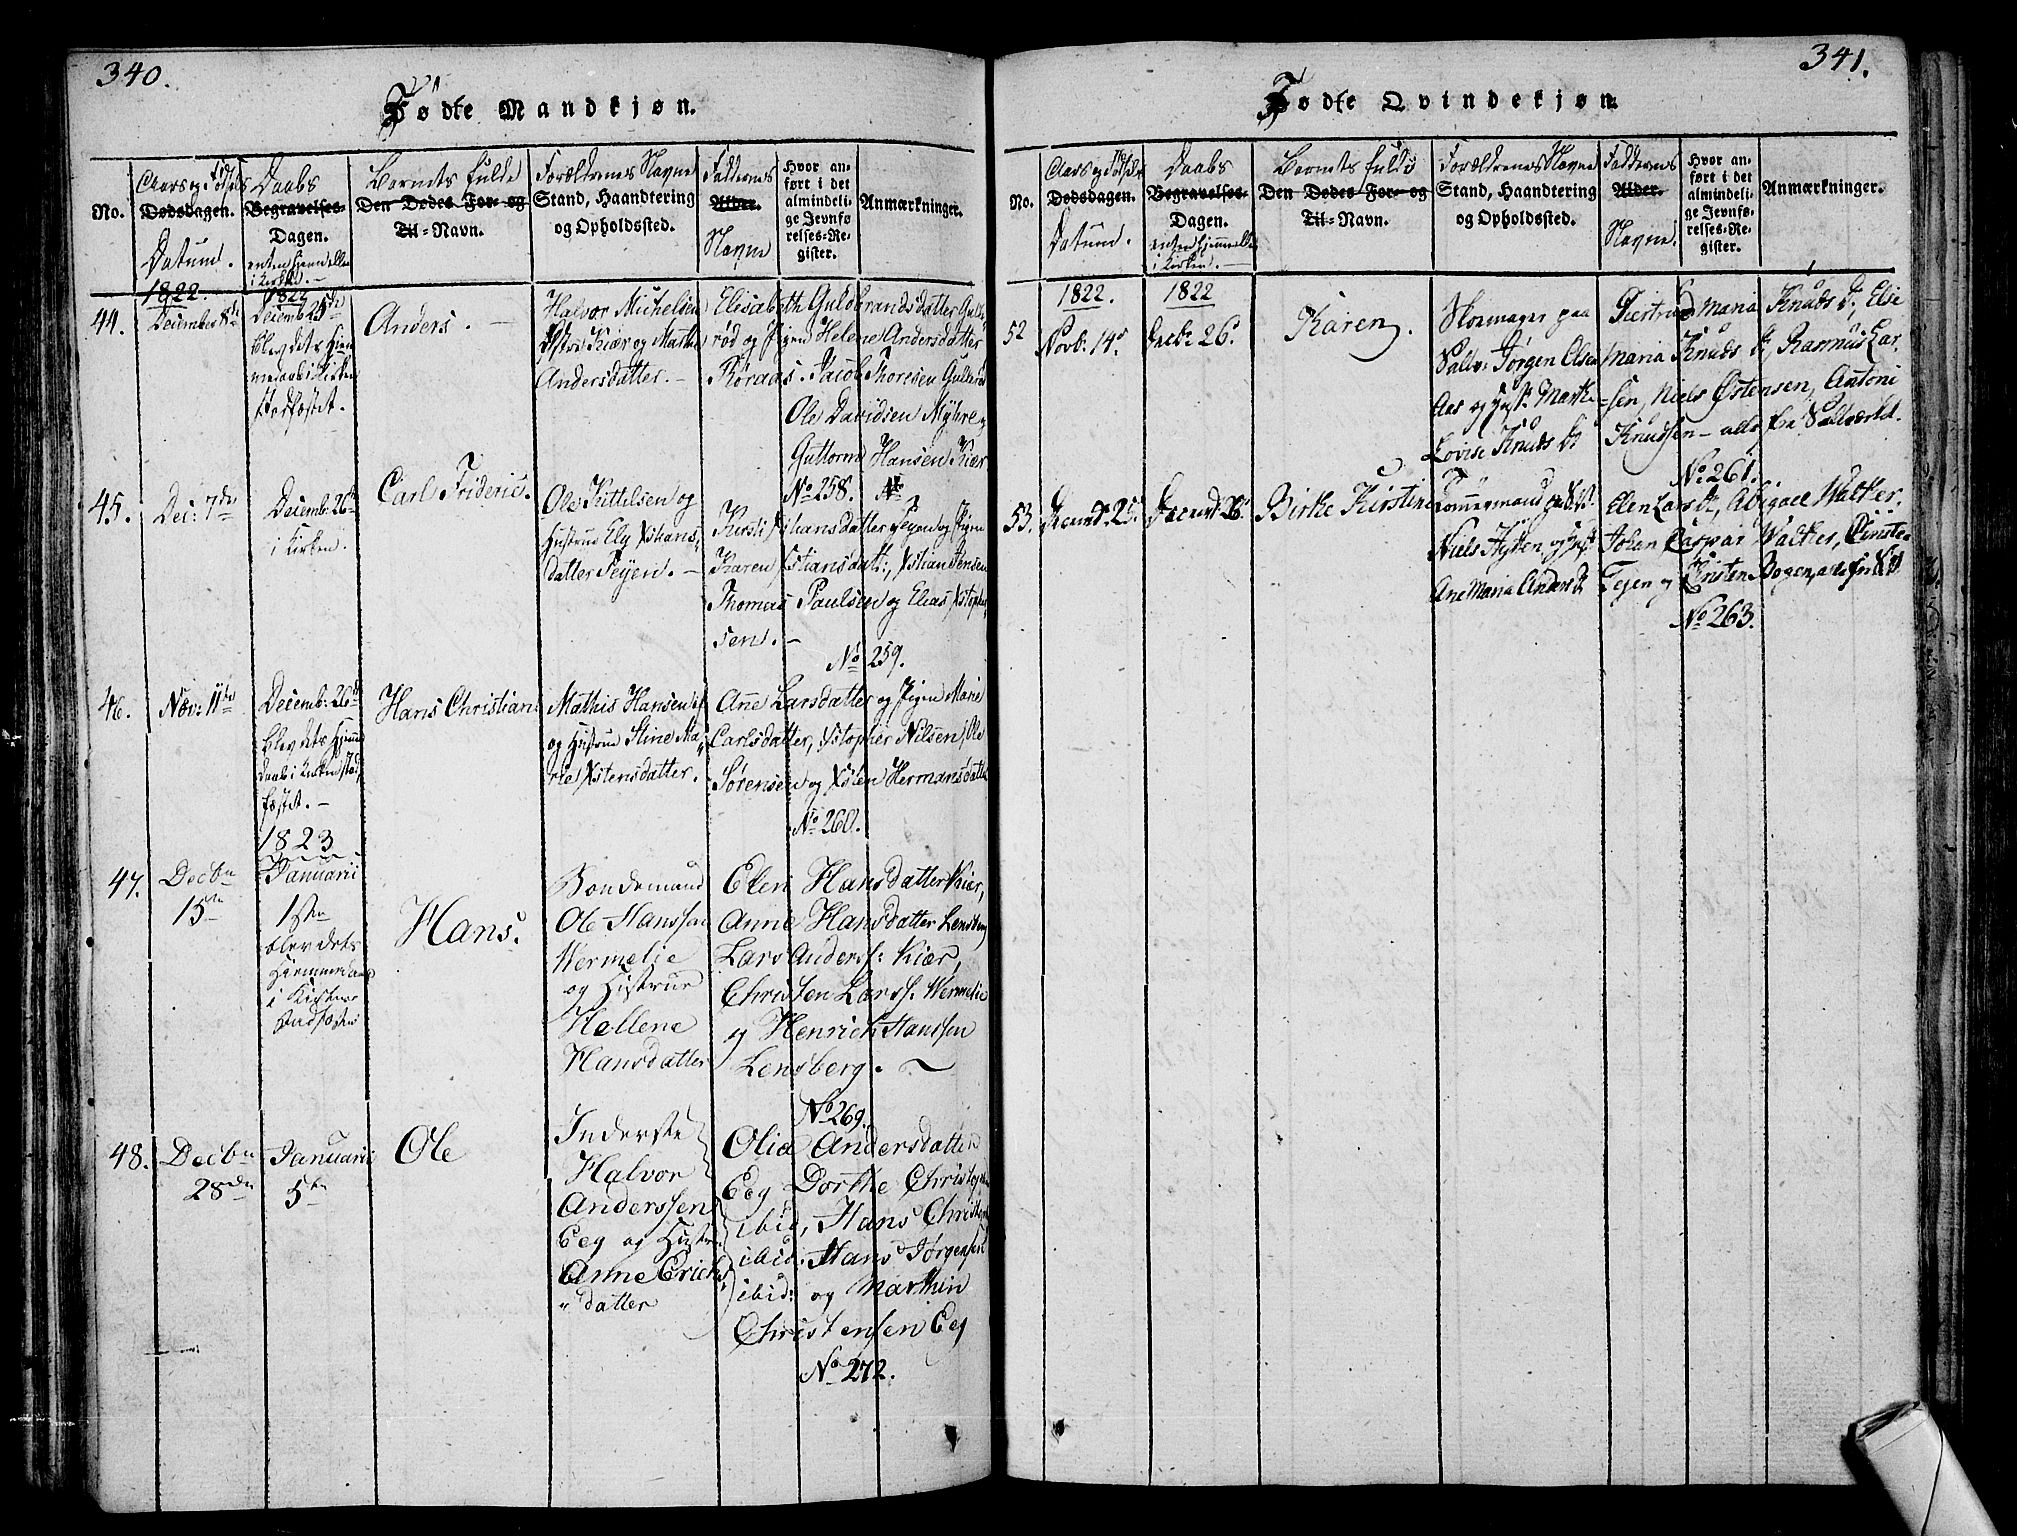 340.
Fødte Mandkjøn.
No.
Aars og Fødsels
Dødsdagen.
Datum.
Daabs
Begravelses-
Dagen.
enten hjemme eller
i Kirken. —
Barnets fulde
Den Dødes For- og
Til-Navn.
Forældrenes Navne
Stand, Haandtering
og Opholdssted.
Faddernes
Alder.
Navne
Hvor an-
ført i det
almindeli-
ge Jevnfø
relses-Re-
gister.
Anmærkninger.
1822.
1822
44.
December 8de
Decemb 25de
blev dets Hjem
medaab i Kirken
stadfæstet.
Anders. —
Halvor Michelsen
Kiær og Marthe
Andersdatter. —
Elisabeth Guldbrandsdatter Gulde
rød og Pigen Helene Andersdatter
Røraas. Jacob Thoresen Gulderød
Ole Davidsen Myhre og
Guttorm Hansen Kiær
No 258.
45.
Dec: 7de
Decemb: 26de
i Kirken.
Carl Frideric.
Ole Kittelsen og
Hustrue Ely Xstians,,
datter Teyen. —
Kirsti Xstiansdatter Teyen og Pigen
Karen Xstiansdatt:, Xstian Jensen
Thomas Paulsen og Elias Xstopher
sen. —
No 259.
46.
Nov: 11te
Decemb: 26de
blev dets Hjemme
daab i Kirken stad
fæstet. —
Hans Christian
Mathis Hansen
og Hustrue Stine Ma,,
rie Xstensdatter.
Anne Larsdatter og Pigen Marie
Carlsdatter, Xstopher Nilsen, Ole
Sørensen og Xsten Hermansdatter
No 260.
1823
47.
Decbr
15de
Januarii
1ste
blev dets
Hiemmedaab
i Kirken
stadfæstet
Hans.
Bondemand
Ole Hanssen
Wermelie
og Hustrue
Hellene
Hansdatter
Elen Hansdatter Kiær,
Anne Hansdatter Lensberg
Lars Anderss: Kiær,
Christen Larss. Wermelie
og Henrich Hanssen
Lensberg. ~
No 269.
48.
Decbr
28de
Januarii
5te
Ole
Inderste
Halvor
Anderssen
Eeg og Hustru
Anne Erichs
"datter
Olia Andersdatter
Eeg Dorthe Christophers
ibid, Hans Christens
ibid: Hans Jørgensen
ibid: og Marthin
Christensen Eeg
No 272.
341.
Fødte Qvindekjøn.
No.
Aars og Fødsels
Dødsdagen.
Datum.
Daabs
Begravelses-
Dagen.
enten hjemme eller
i Kirken. —
Barnets fulde
Den Dødes For- og
Til-Navn.
Forældrenes Navne
Stand, Haandtering
og Opholdssted.
Faddernes
Alder.
Navne.
Hvor an-
ført i det
almindeli-
ge Jevnfø-
relses-Re-
gister.
Anmærkninger.
1822.
1822
52
Novb. 14.
Decb. 26.
Karen.
Skomager paa
Vallø: Jørgen Olsen
Aas og Hust. Marthe
Lovise Knuds Dt
Giertrud Maria Knuds D., Else
Maria Knuds Dt, Rasmus Lar-
=sen, Niels Østensen, Antoni
Knudsen – alle fra Saltværket.
No 261.
53.
Decemb. 25.
Decemb. 26.
Birke Kirstine
Tømmermand
Niels og Hust
Ane Maria Anders Dt
Elen Lars Dt, Abigael Walker,
Johan Caspar Walker,
Tejen og Kirsten Bogen, alle fra
No 263.